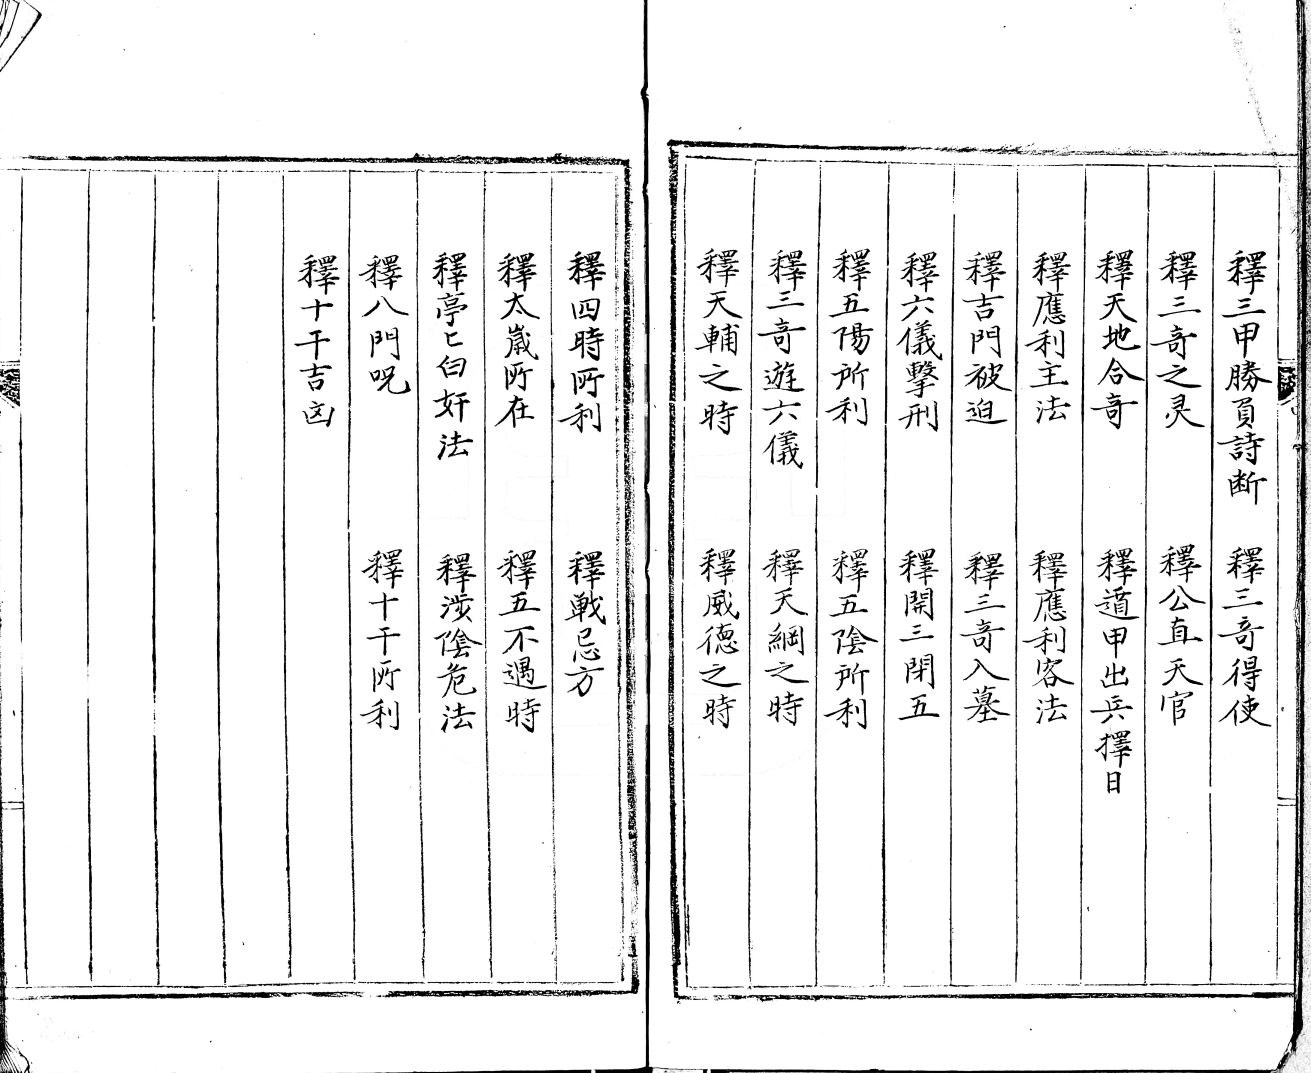 釋三甲勝負詩断　釋三竒得使
釋三竒之灵　釋公直天官
釋天地合竒　釋遁甲出兵擇日
釋應利主法　釋應利客法
釋吉門被迫　釋三竒入墓
釋六儀擊刑　釋開三閉五
釋五陽所利　釋五陰所利
釋三竒遊六儀　釋天綱之時
釋天輔之時　釋威德之時
釋四時所利　釋戰忌方
釋太嵗所在　釋五不遇時
釋亭〻白奸法　釋涉陰危法
釋八門呪　釋十干所利
釋十干吉凶